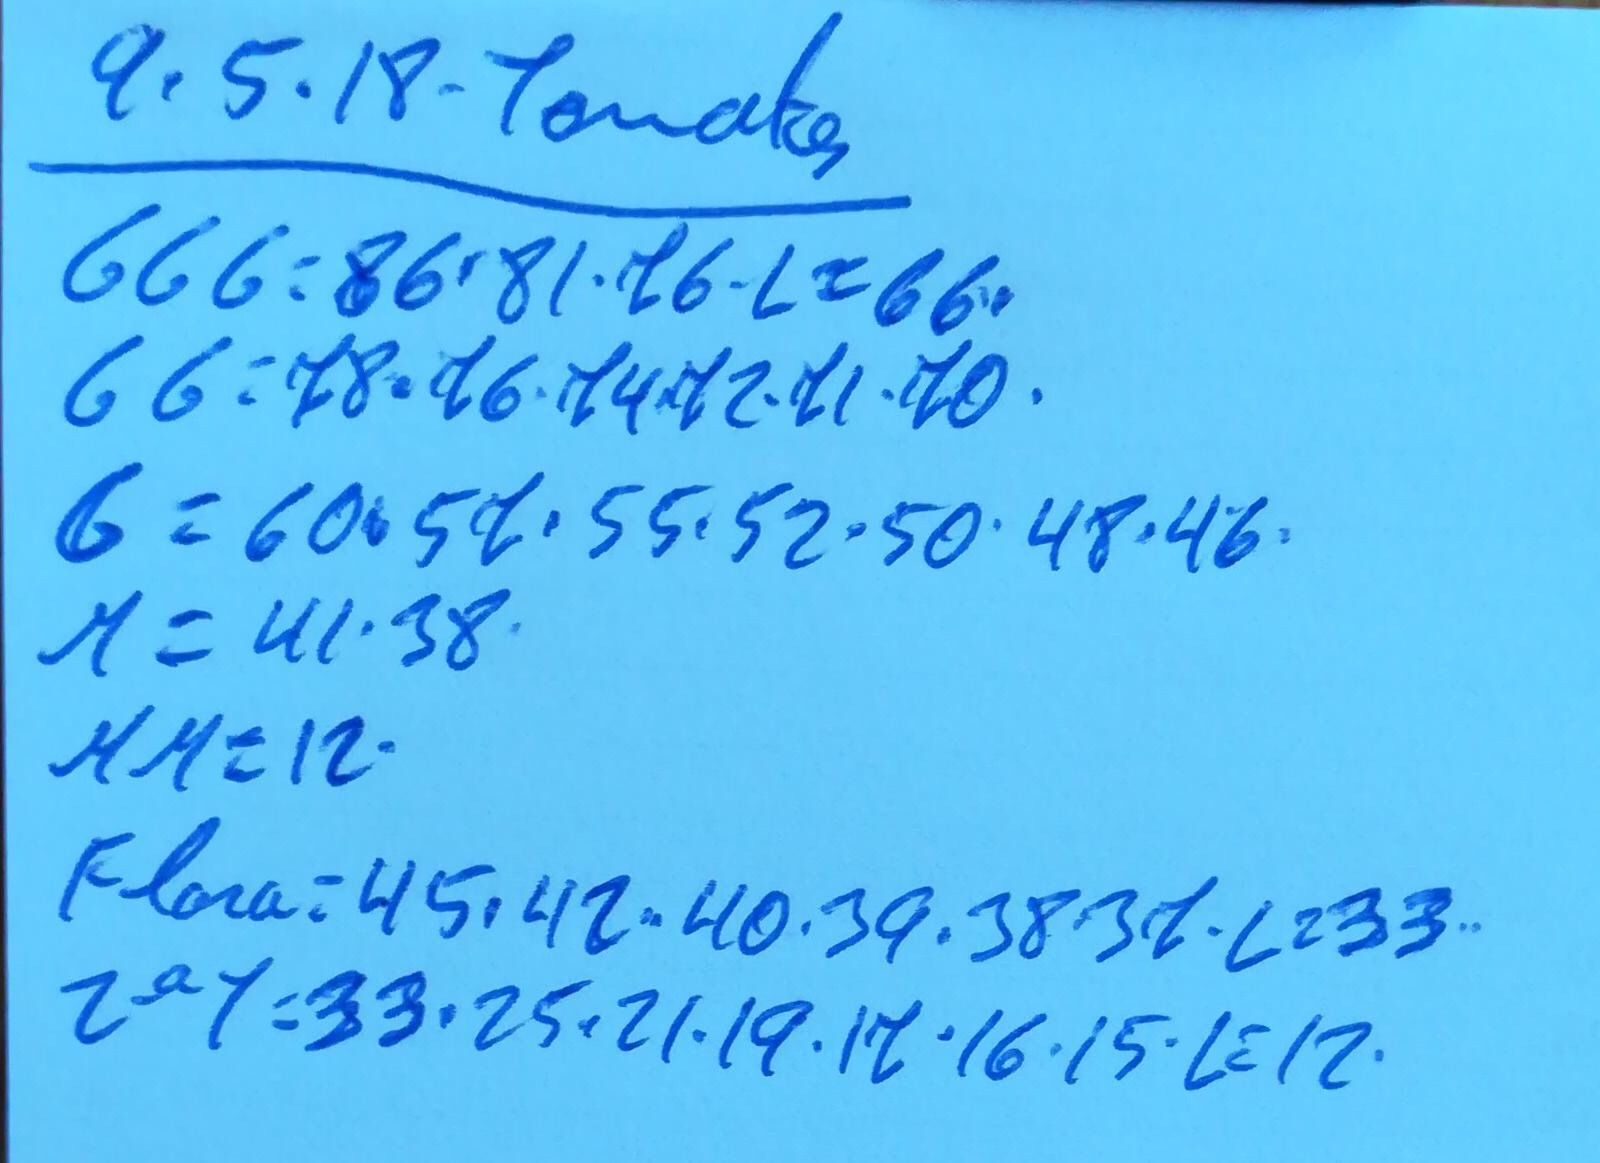 9.5.18-Tomates
GGG=86.81.76.L=66.
GG=78.76.74.72.71.70.
G=60.57.55.52.50.48.46.
M=41.38.
MM=12.
Flora=45.42.40.39.38.37.L=33.
2ªT=33.25.21.19.17.16.15.L=12.